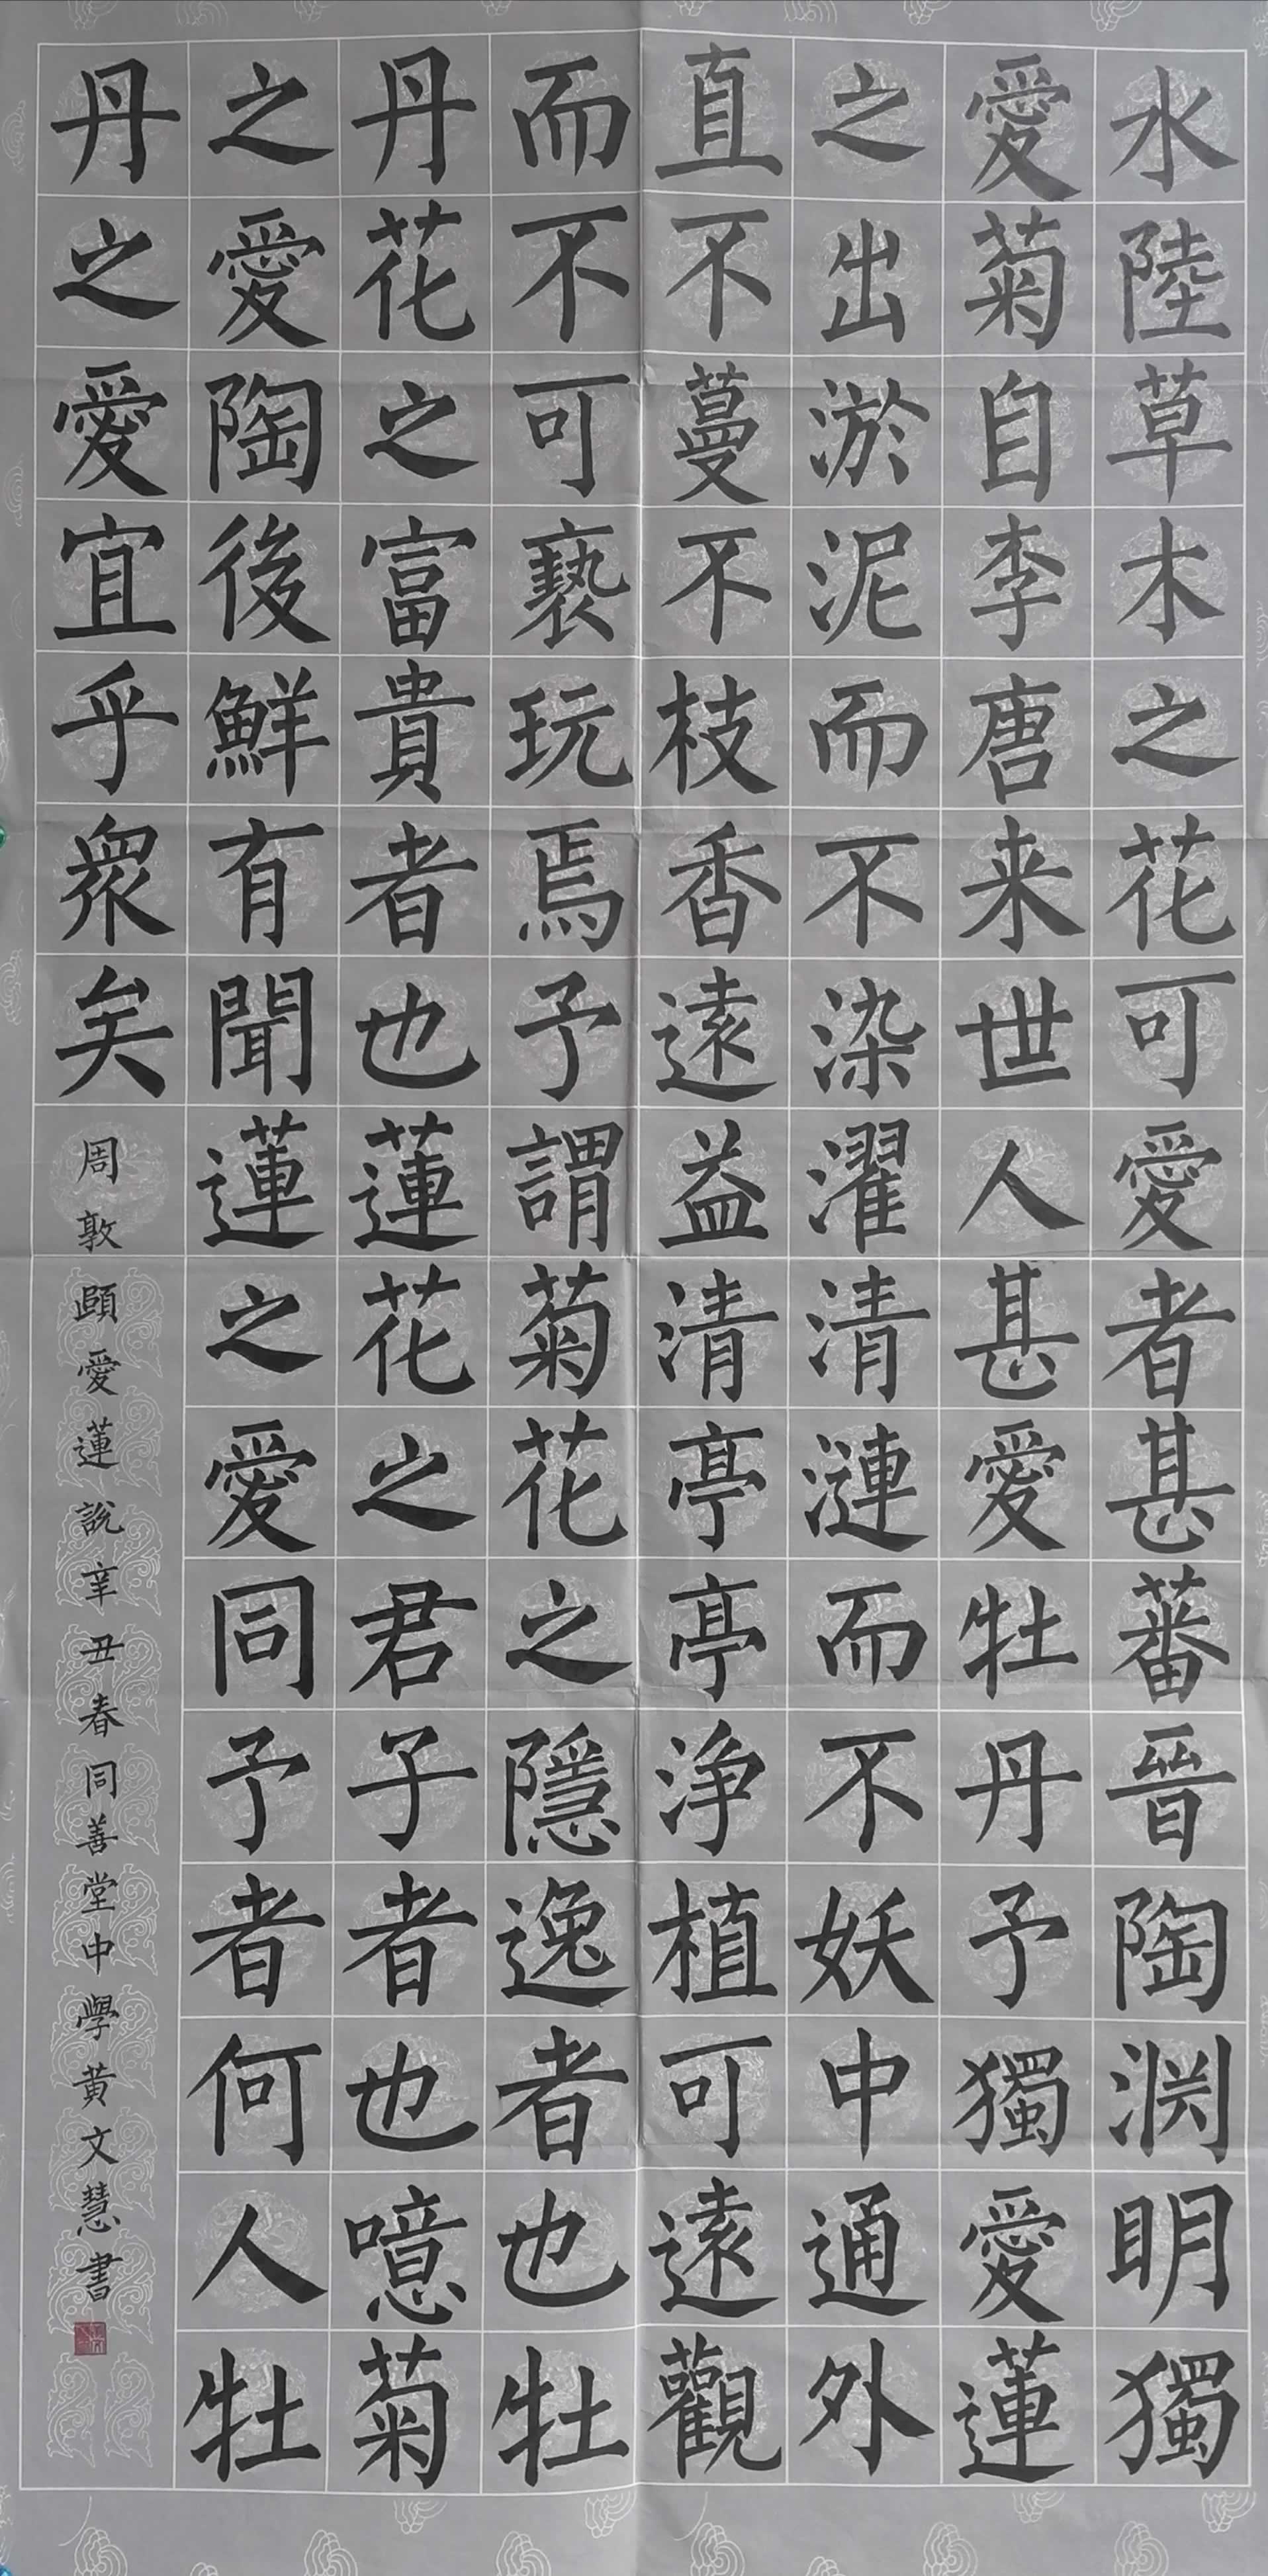 水陸草木之花可愛者甚蕃晉陶渕明獨
愛菊自李唐来世人甚愛牡丹予獨愛蓮
之出淤泥而不染濯清漣而不妖中通外
直不蔓不枝香遠益清亭亭净植可遠觀
而不可褻玩焉予謂菊花之隱逸者也牡
丹花之富貴者也蓮花之君子者也噫菊
之愛陶後鮮有聞蓮之愛同予者何人牡
丹之愛宜乎眾矣
周敦頤愛蓮說辛丑春同善堂中學黄文慧書